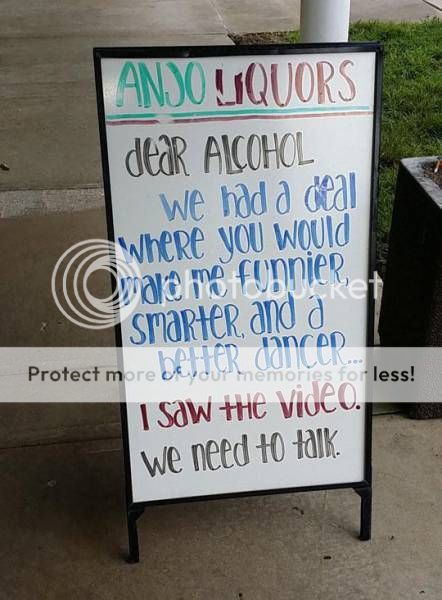 ANJO LIQUORS
dear ALCOHOL
we had a deal
where you would
make me funnier,
smarter, and a
better dancer...
I saw the video.
we need to talk.
photobucket
Protect more of your memories for less!